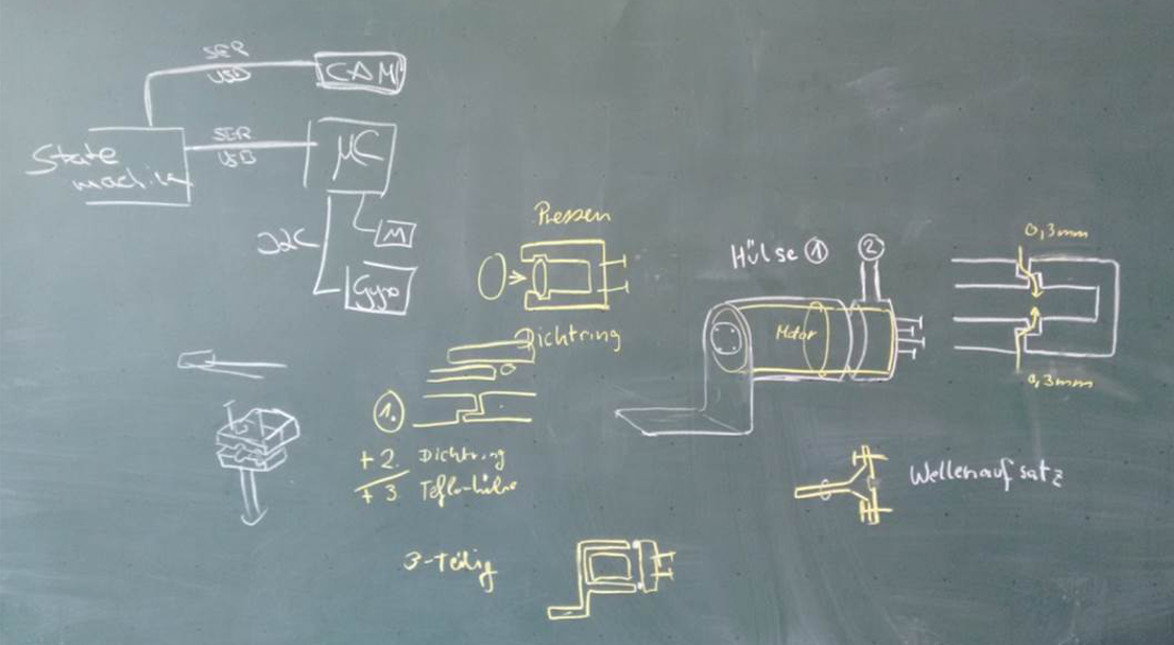 SER
USB
CAM
State
machine
SER
USB
µC
I2C
M
Gyro
Pressen
Dichtring
1.
+ 2. Dichtring
+ 3. Teflonhülse
3-teilig
Hülse 1
2
Motor
0,3mm
0,3mm
Wellenaufsatz